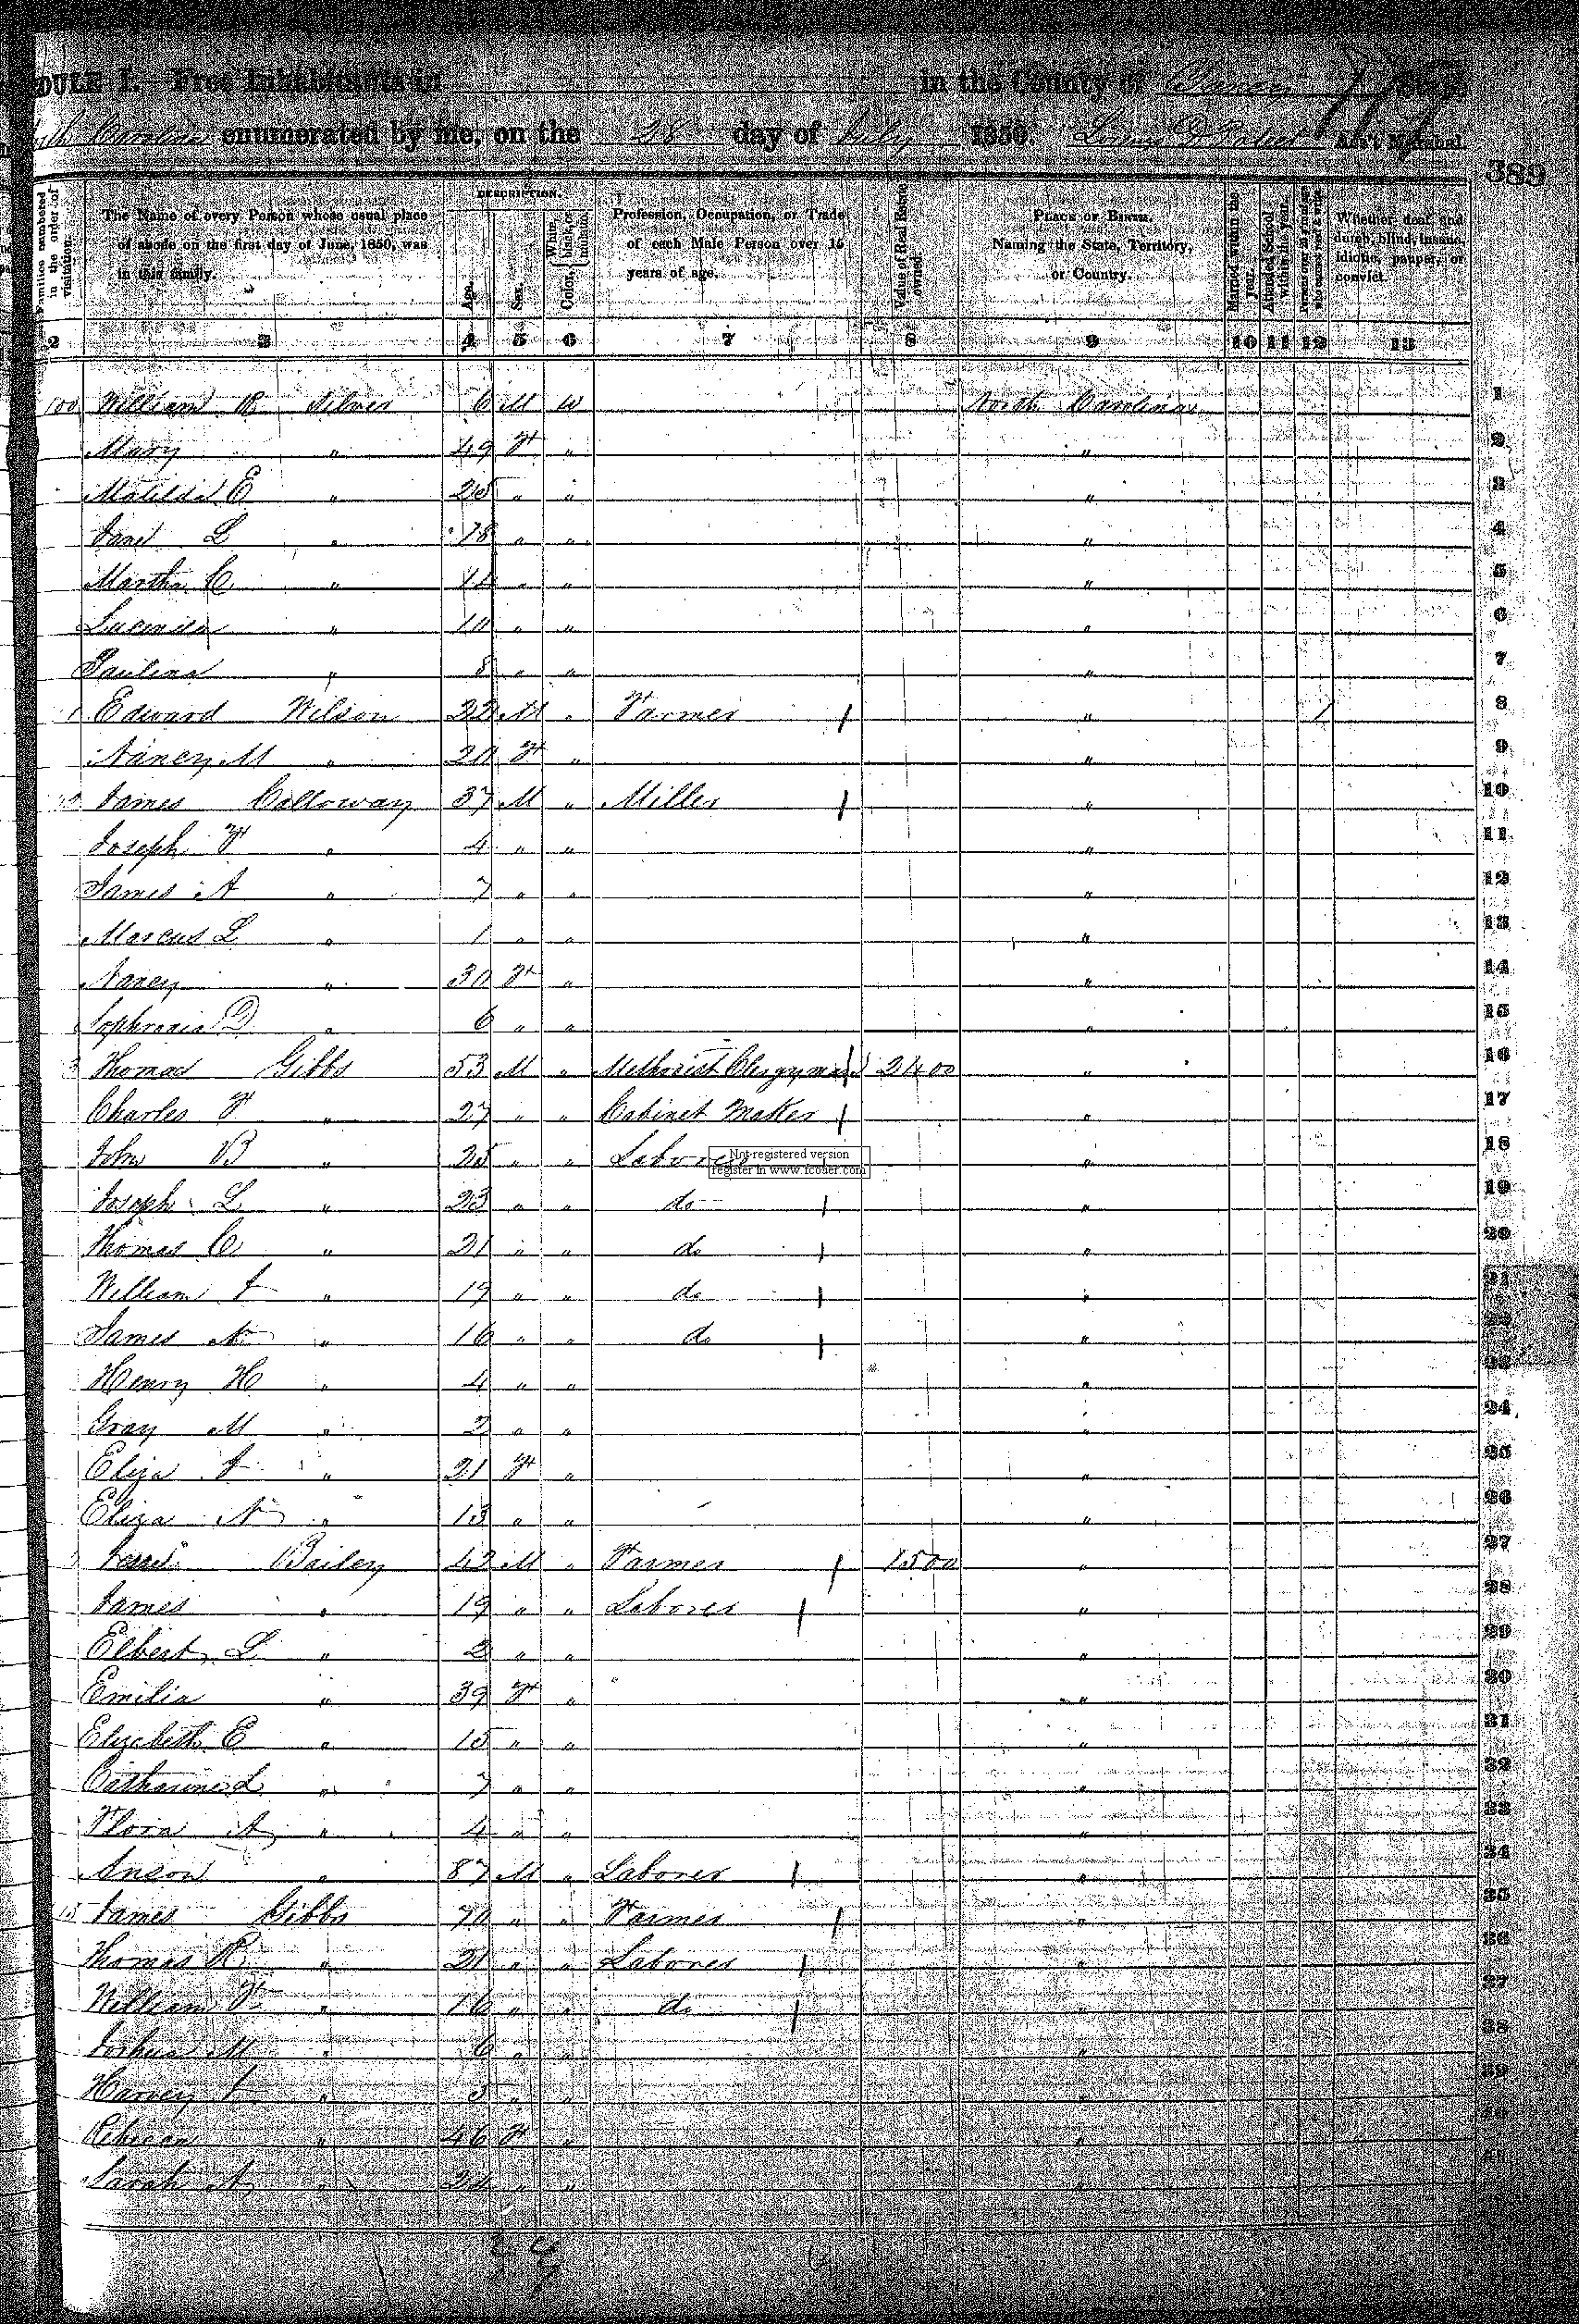 DULE I. Free Inhabitants in in the County of Yancey
Carolina enumerated by me, on the 28 day of July 1850. Ass't Marshal.
389
Families numbered in the order of visitation.
The Name of every Person whose usual place of abode on the first day of June, 1850, was in this family.
DESCRIPTION.
Age.
Sex.
Color, White, black, or mulatto.
Profession, Occupation, or Trade of each Male Person over 15 years of age.
Value of Real Estate owned.
PLACE OF BIRTH. Naming the State, Territory, or Country.
Married within the year.
Attended School within the year.
Whether deaf and dumb, blind, insane, idiotic, pauper, or convict.
2 3 4 5 6 7 8 9 10 11 12 13
100 William R Silver 6 M W North Carolina 1
Mary " 49 F " " 2
Matilda E " 25 " " " 3
Janet L " 18 " " " 4
Martha C " 14 " " " 5
Lucinda " 10 " " " 6
Paulina " 8 " " " 7
1 Edward Wilson 22 M " Farmer " / 8
Nancy M " 20 F " " 9
James Calloway 37 M " Miller " 10
Joseph F " 4 " " " 11
James A " 7 " " " 12
Marcus L " 1 " " " 13
Nancy " 30 F " " 14
Sophronia D " 6 " " " 15
3 Thomas Gibbs 53 M " Methodist Clergyman 2400 " 16
Charles F " 27 " " Cabinet Maker " 17
John B " 25 " " Laborer " 18
Not registered version
register in www.fcoder.com
Joseph L " 23 " " do " 19
Thomas C " 21 " " do " 20
William J " 19 " " do " 21
James N " 16 " " do "
Henry H " 4 " " "
Gray M " 2 " " " 24
Eliza J " 21 F " " 25
Eliza N " 13 " " " 26
Bailey 42 M " Farmer 1500 " 27
James " 19 " " Laborer " 28
Elbert L " 2 " " " 29
Emilia " 39 F " " 30
Elizabeth E " 15 " " " 31
Catharine L " 7 " " " 32
Flora A " 4 " " " 33
Anson " 87 M " Laborer " 34
15 James Gibbs 70 " " Farmer " 35
Thomas R " 21 " " Laborer " 36
William F " 16 " " do " 37
Joshua M " 6 " " " 38
Harvey J " 5 " " "
Rebecca " 46 F " "
Sarah A " 24 " " "